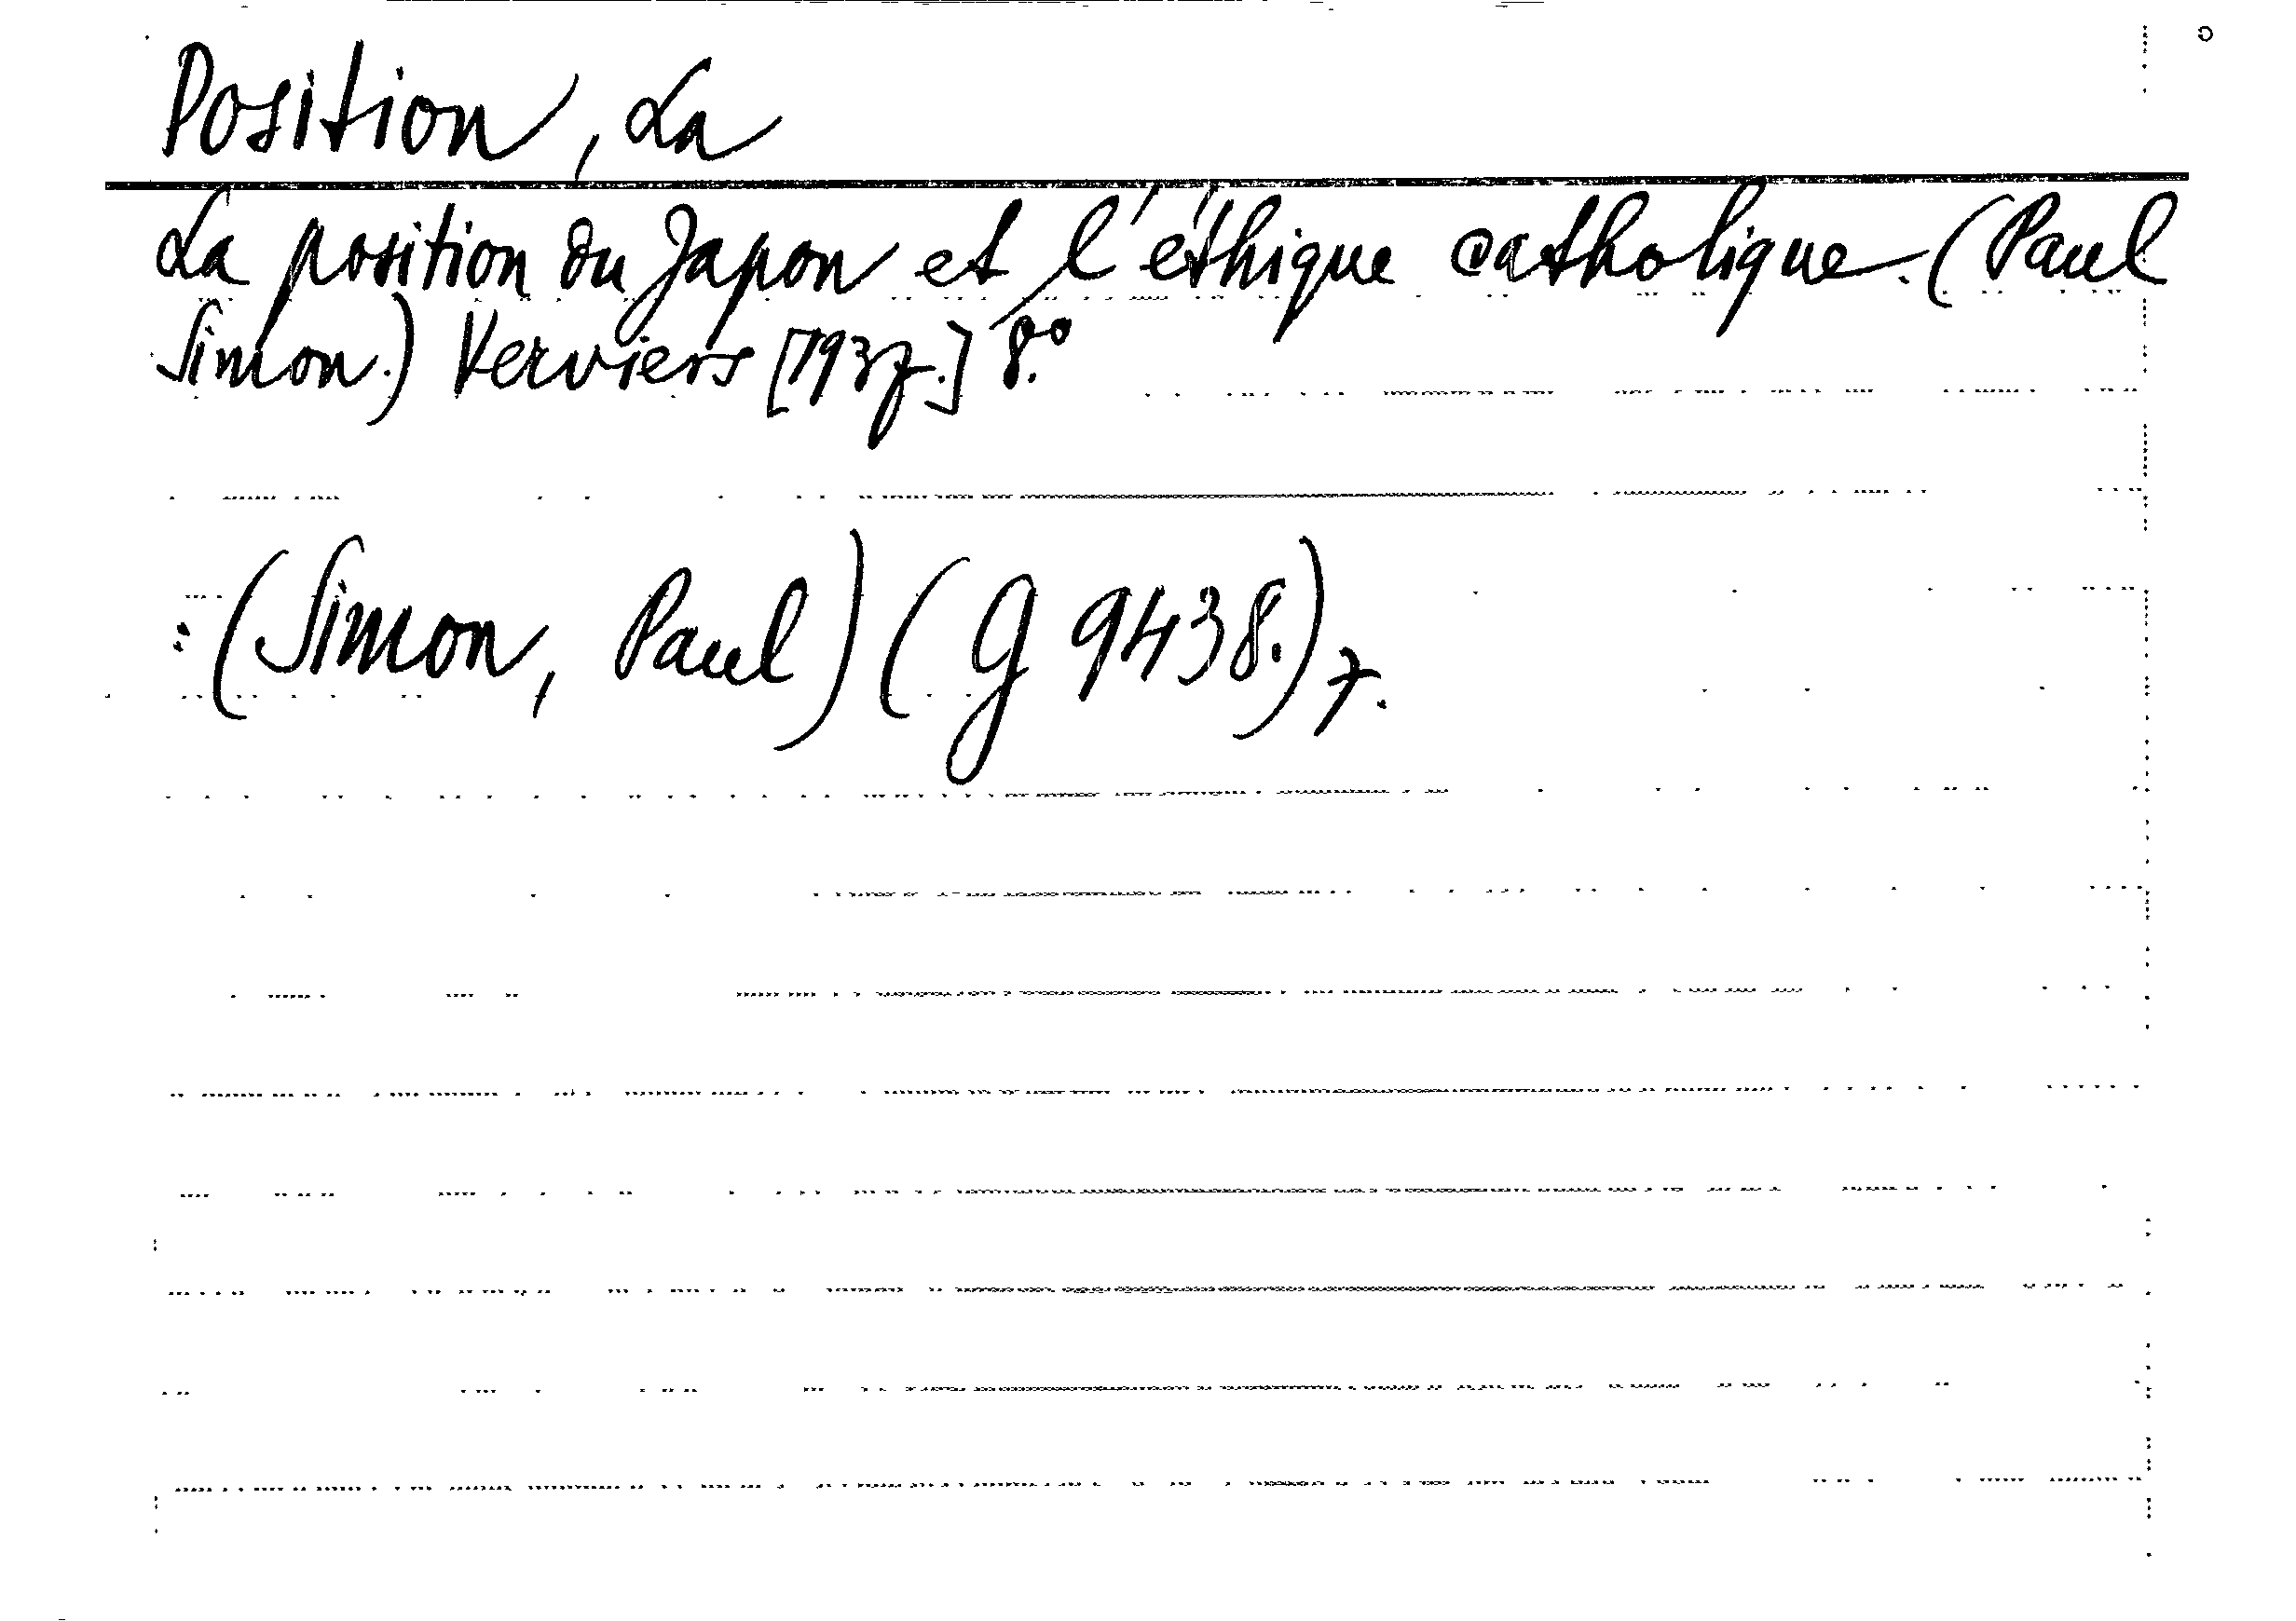 Position, La
La position du Japon et l'éthique catholique. (Paul
Simon.) Verviers [1937.] 8.°
: (Simon, Paul) (G 9438.) 7.